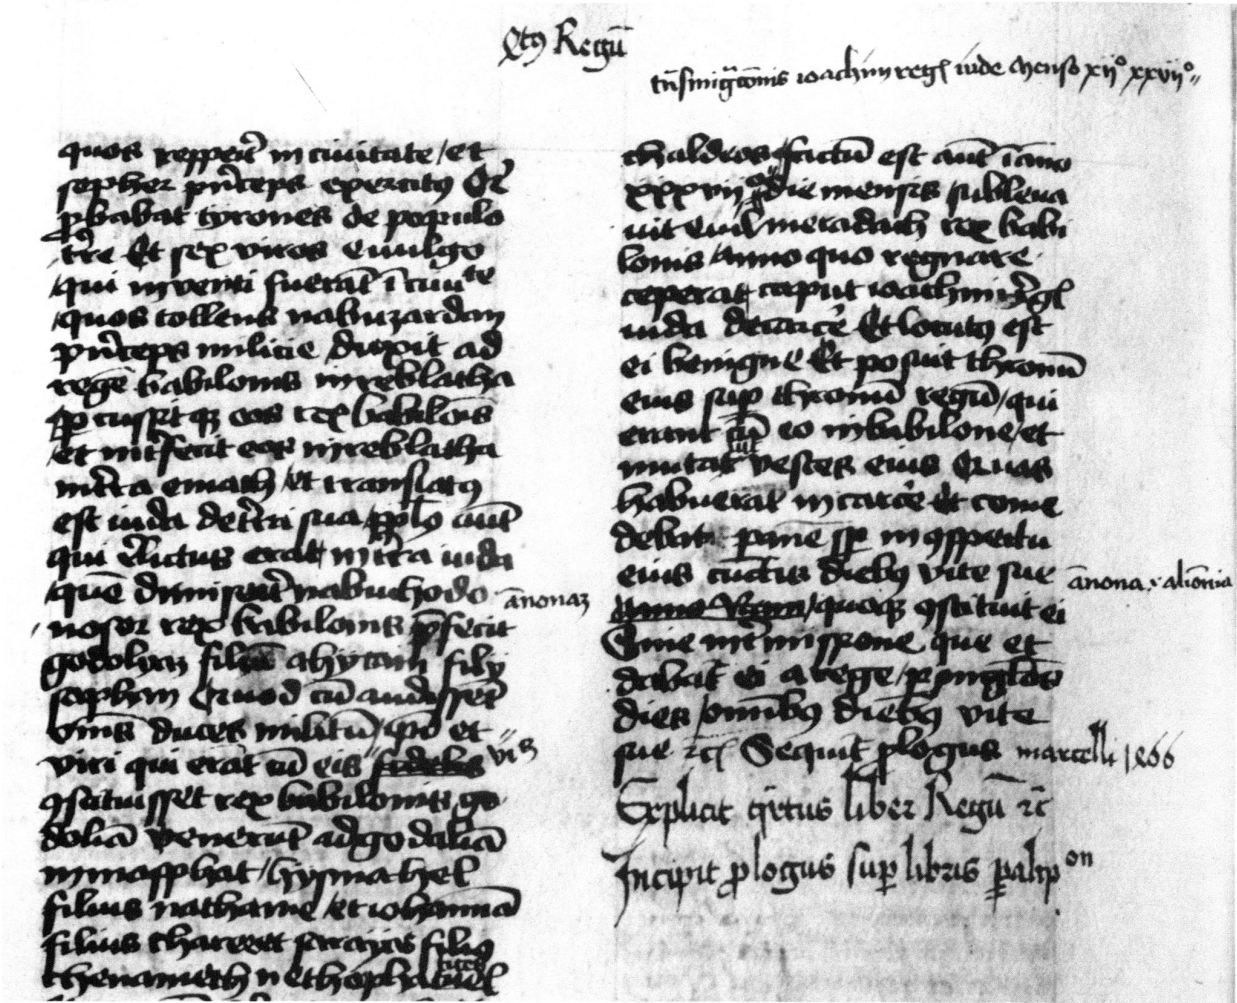 q̄tꝯ Regū
tn̄smigͣcōnis ioachim regꝭ iude mense xijº xxvijº
quos repperit in ciuitate / et
sepher p̄nceps exercitꝯ Qͥ
ꝓbabat tyrones de populo
tr̄re Et sex viros e wlgo
qui inventi fuerāt ī ciuiᵗᵉ
quos tollens nabuzardan
p̄nceps milicie / duxit ad
regē babilonis in reblatha
ꝑcussitqꝫ eos rex babilōis
et int̄fecit eos in reblatha
in tr̄ra emath / et translatꝯ
est iuda de tr̄ra sua / pplo aūt
qui relictus erat in tr̄ra iuda
quē dimiserat nabuchodo
ānonaꝫ
nosor rex babilonis p̄fecit
godolyaꝫ filiū ahycam filij
saphan Quod cū audissēt
vniūs duces militū / ip̄i et
viri qui erāt cū eis
ꝯstituisset rex babilonis go
doliā venerūt ad godaliā
in masphat / hysmahel
filius nathanie / et iohannā
filius charee saraias filiꝯ
thenameth
chaldeos / factū est aūt ī āno
xxxvij die mensis / subleua
uit euilmeradach rex babi
lonis / anno quo regnare
ceperat caput ioachim r̄gꝭ
iuda de carcē Et locutꝯ est
ei benigne Et posuit thronū
eius suꝑ thronū regū / qui
erant cū eo in babilone / et
mutauit vestes eius Quas
habuerat in carcē Et come
debat panē sp̄ in ꝯspectu
eius cunctis diebꝫ vite sue
ānona ł alimōnia
quoqꝫ ꝯstituit ei
Sine int̄missione que et
dabat̄ ei a rege / ꝑ singlōs
dies / omnibꝫ diebꝫ vite
sue ꝛcꝭ Sequit̄ ꝓlogus marcelli
Explicit qͣrtus liber Regū ꝛc̄
Incipit ꝓlogus suꝑ libris ꝑalipᵒⁿ